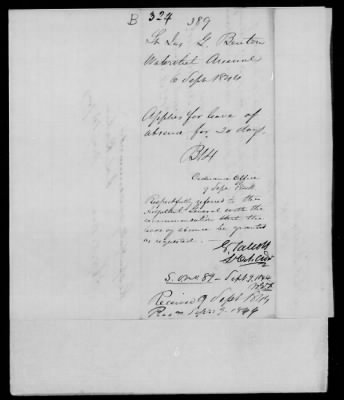 B 324 389
Lt Jas G. Benton
Watervliet Arsenal
6 Sept 1844
Applies for leave of
absence for 20 days.
Ordnance Office
9 Sept
Respectfully referred to the
General with the
recommendation that the
leave of absence be granted
as requested.
G. Talcott
Lt Col. Ord
Sept 9. 1844
Received 9 Sept 1844
Sept 9. 1844